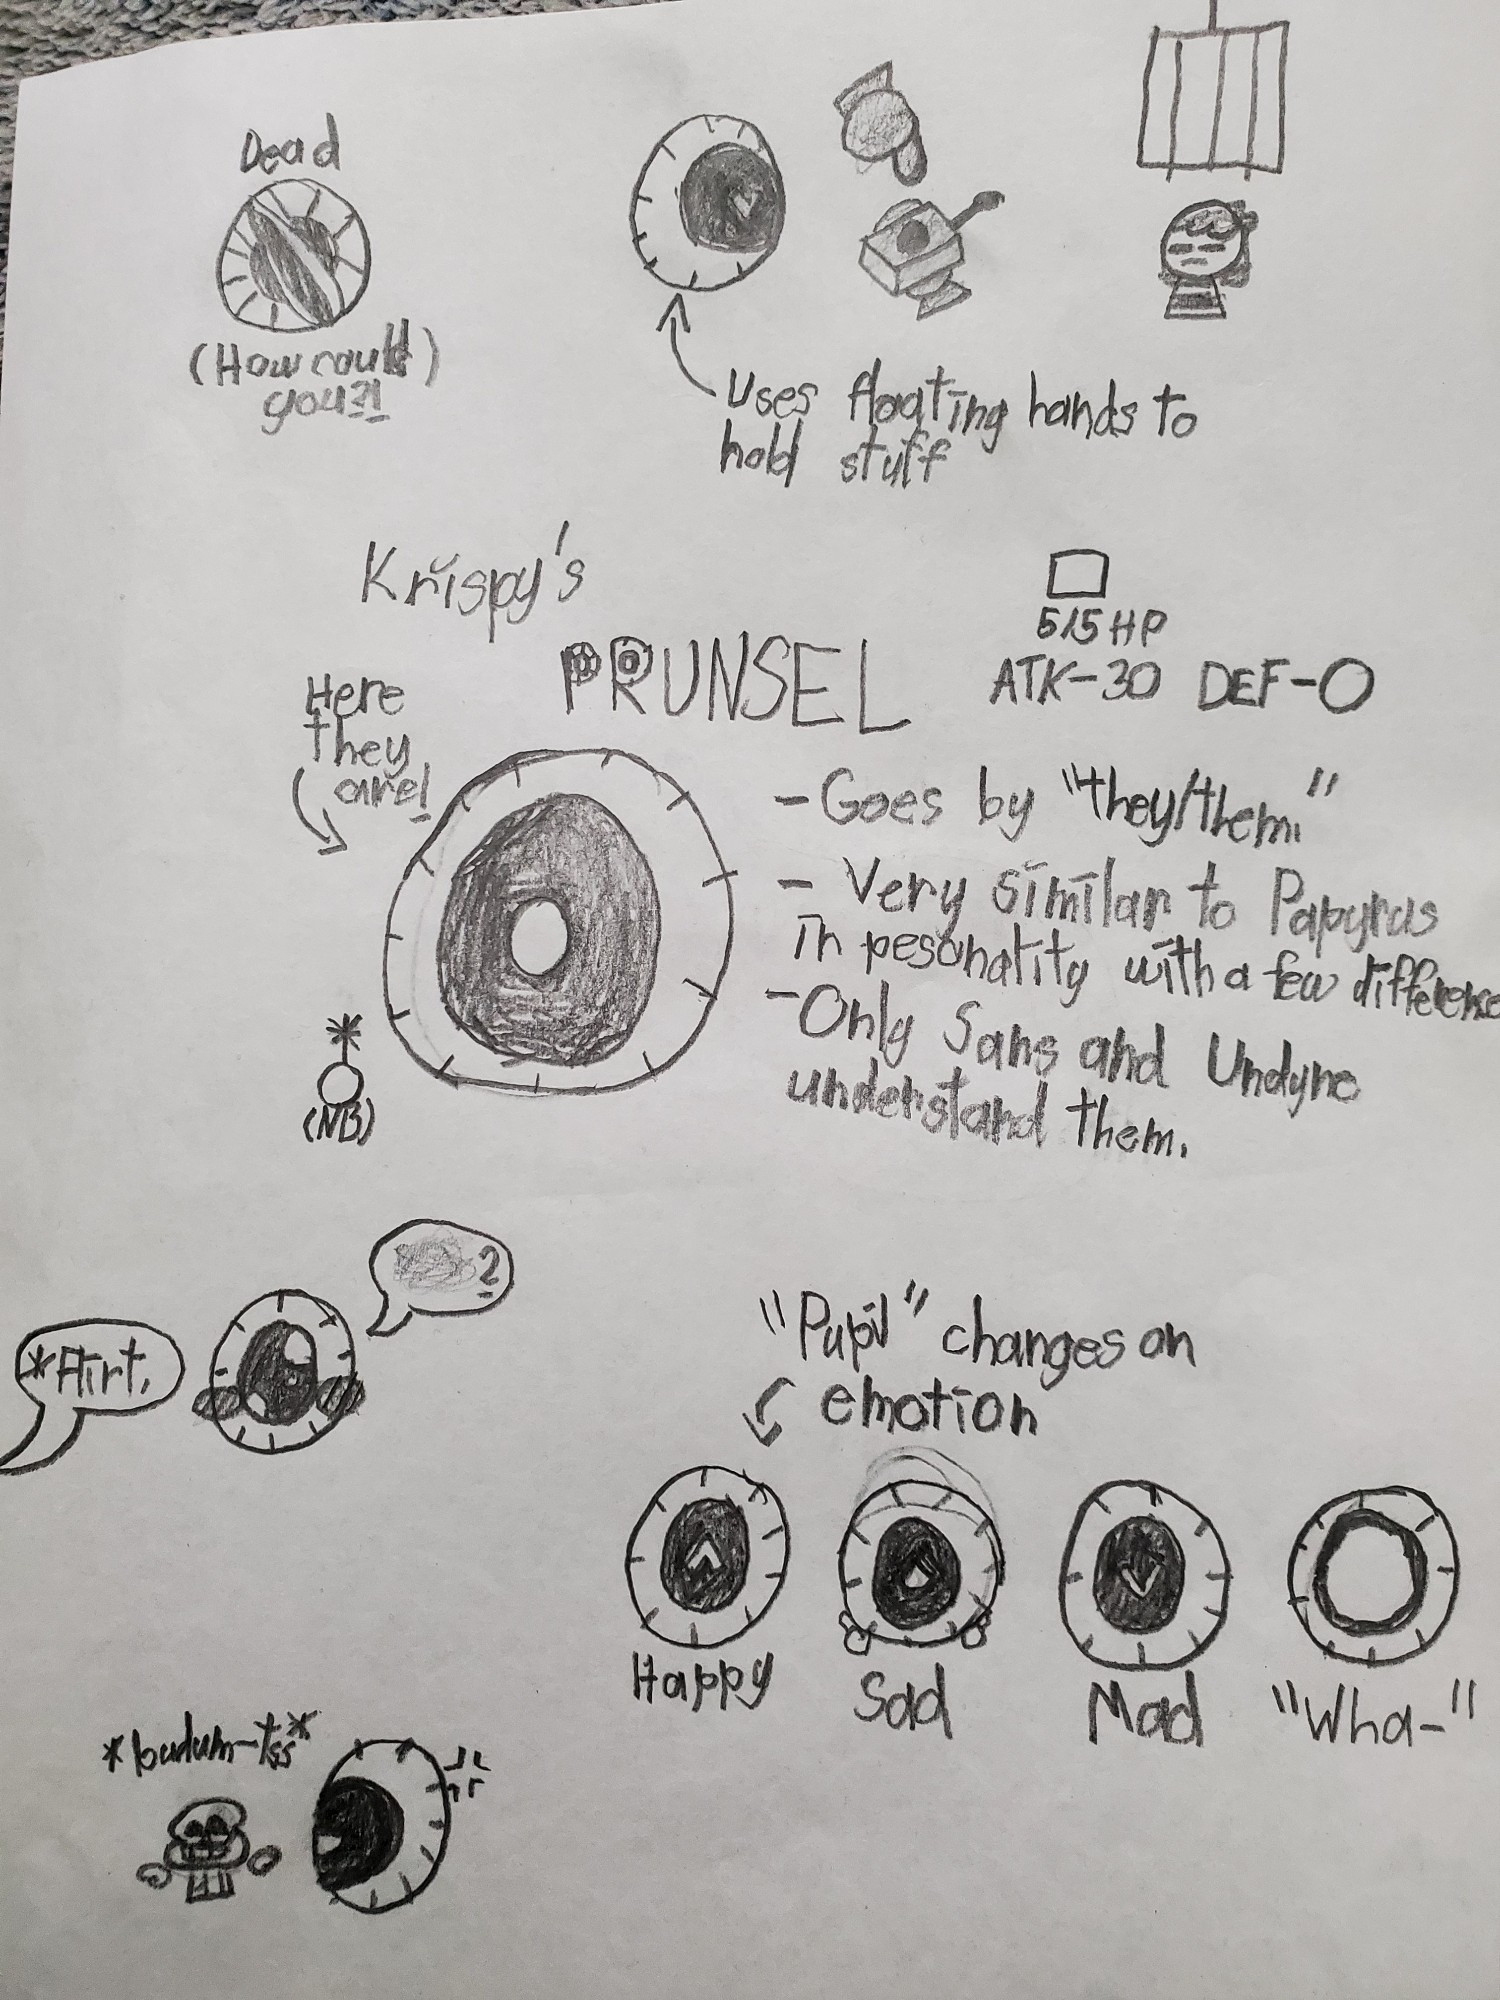 Dead
(How could)
you?!
Uses floating hands to
hold stuff
Krispy's
PRUNSEL
515 HP
ATK-30 DEF-0
Here
they
are!
-Goes by "they/them."
- Very similar to Papyrus
in pesonality with a few difference
-Only Sans and Undyne
understand them.
(NB)
?
*Flirt.
"Pupil" changes on
emotion
Happy
Sad
Mad
"Wha-"
*badum-tss*